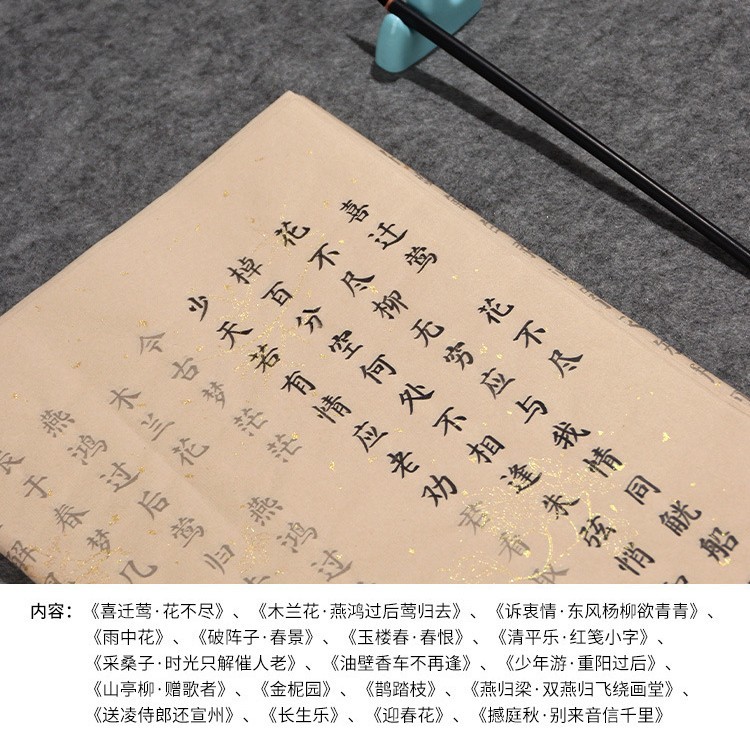 喜迁莺 花不尽
花不尽柳无穷应与我情同觥船
棹百分空何处不相逢朱弦悄
少天若有情应老劝君看取
今古梦茫茫
木兰花 燕鸿过
燕鸿过后莺归
长于春梦几
解
内容：《喜迁莺·花不尽》、《木兰花·燕鸿过后莺归去》、《诉衷情·东风杨柳欲青青》、
《雨中花》、《破阵子·春景》、《玉楼春·春恨》、《清平乐·红笺小字》、
《采桑子·时光只解催人老》、《油壁香车不再逢》、《少年游·重阳过后》、
《山亭柳·赠歌者》、《金柅园》、《鹊踏枝》、《燕归梁·双燕归飞绕画堂》、
《送凌侍郎还宣州》、《长生乐》、《迎春花》、《撼庭秋·别来音信千里》